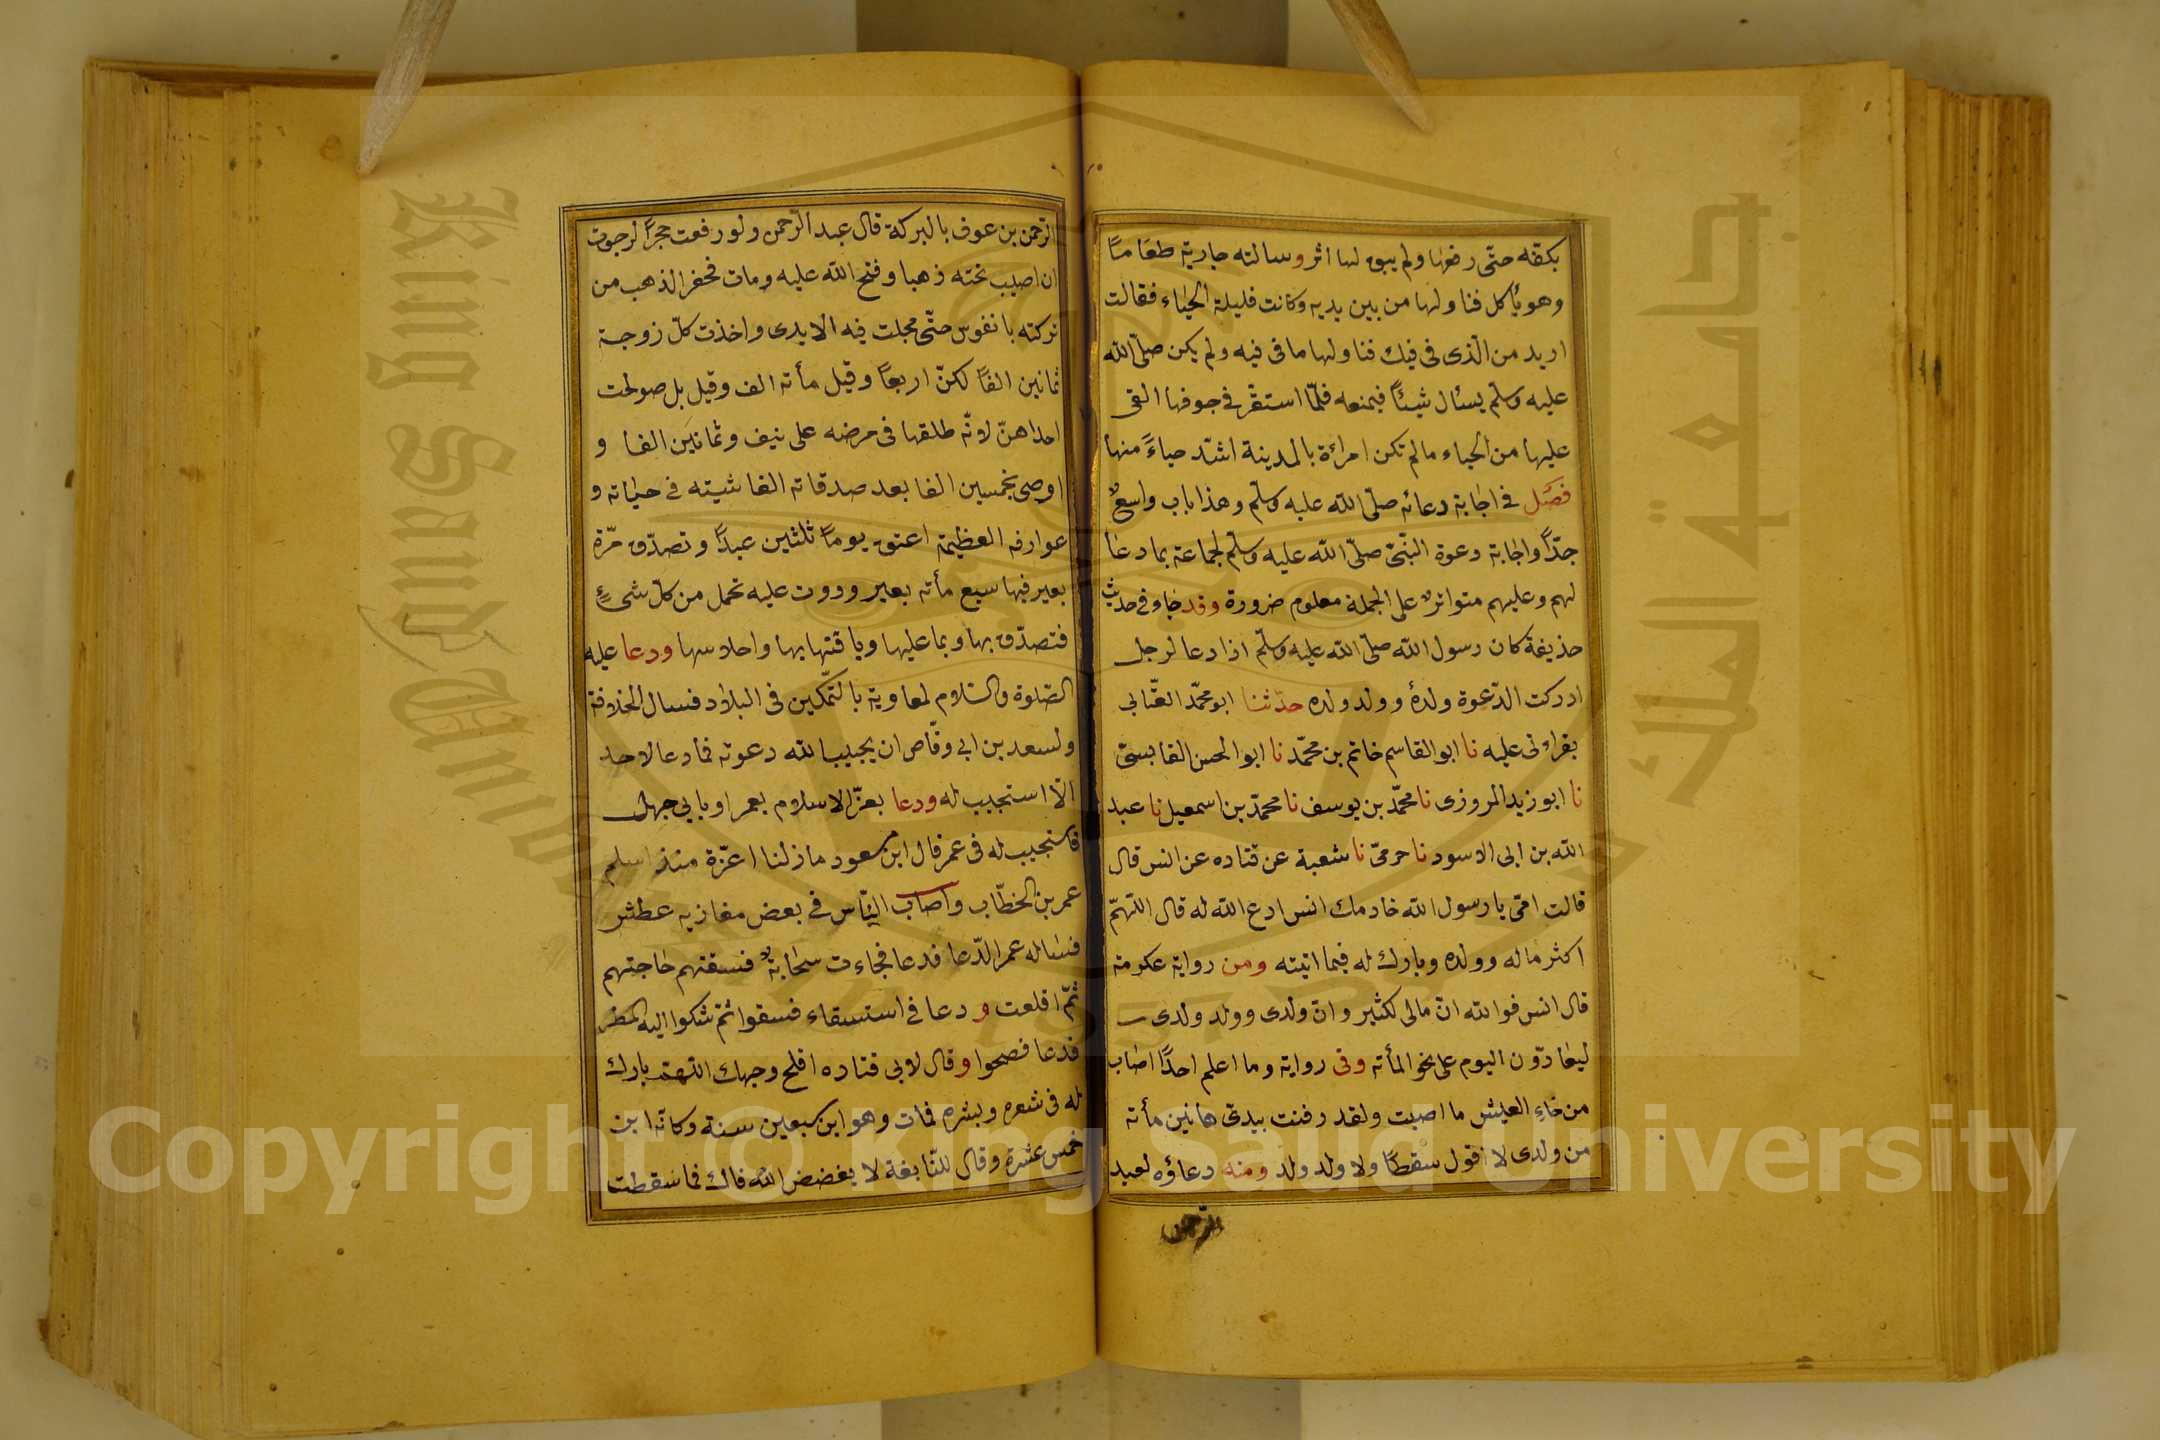 بكفّه حتّى رفعها ولم يبق لها اثر وسالته جارية طعاما
وهو يأكل فناولها من بين يديه وكانت قليلة الحياء فقالت
اريد من الّذى فى فيك فناولها ما فى فيه ولم يكن صلّى الله
عليه وسلّم يسئال شيئًا فيمنعه فلمّا استقرّ فى جوفها القى
عليها من الحياء ما لم تكن امراءة بالمدينة اشدّ حياءً منها
فصل فى اجابة دعائه صلّى الله عليه وسلّم وهذا باب واسع
جدّاً واجابة دعوة النّبىّ صلّى الله عليه وسلّم لجماعة بما دعا
لهم وعليهم متواتر على الجملة معلوم ضرورة وقد جاء فى حديث
حذيفة كان رسول الله صلّى الله عليه وسلّم اذا دعا لرجل
ادركت الدّعوة ولدهُ وولد ولده حدّثنا ابو محمّد العتّابى
بقراءتى عليه نا ابو القاسم خاتم بن محمّد نا ابو الحسن القابسىّ
نا ابو زيد المروزى نا محمّد بن يوسف نا محمّد بن اسمعيل نا عبد
الله بن ابى الاسود نا حرمىّ نا شعبة عن قتاده عن انس قال
قالت امّى يا رسول الله خادمك انس ادع الله له قال اللّهمّ
اكثر ماله وولده وبارك له فيما اتيته ومن رواية عكرمة
قال انس فوالله انّ مالى لكثير وانّ ولدى وولد ولدى
ليعادّون اليوم على نحو المأته وفى رواية وما اعلم احدًا اصاب
من رخاء العيش ما اصبت ولقد دفنت بيدىّ هاتين مأته
من ولدى لا اقول سقطًا ولا ولد ولد ومنه دعاؤه لعبد
الرّحمن
الرّحمن بن عوف بالبركة قال عبد الرّحمن ولو رفعت حجراً لرجوت
ان اصيب تحته ذهبا وفتح الله عليه ومات فحفر الذهب من
تركته بالفؤس حتّى مجلت فيه الايدى واخذت كلّ زوجة
ثمانين الفاً لكنّ اربعاً وقيل مأته الف وقيل بل صولحت
احداهنّ لانّه طلقها فى مرضه على نيف وثمانين الفا و
اوصى بخمسين الفا بعد صدقاته الفاشيته فى حياته و
عوارفه العظيمة اعتق يوماً ثلثين عبداً وتصدّق مرّة
بعير فيها سبع مأته بعير وردت عليه تحمل من كلّ شىءٍ
فتصدّق بها وبما عليها وباقتابها واحلاسها ودعا عليه
الصّلوة والسّلام لمعاوية بالتّمكين فى البلاد فنال الخلافة
ولسعد بن ابى وقّاص ان يجيب الله دعوته فما دعا لاحد
الّا استجيب له ودعا بعزّ الاسلام بعمر او بابى جهل
فاستجيب له فى عمر قال ابن مسعود ما زلنا اعزّة منذ اسلم
عمر بن الخطّاب واصاب النّاس فى بعض مغازيه عطش
فسئاله عمر الدّعا فدعا فجاءت سحابة فسقتهم حاجتهم
ثمّ اقلعت و دعا فى استسقاء فسقوا ثمّ شكوا اليه المطر
فدعا فصحوا وقال لابى قتاده افلح وجهك اللّهمّ بارك
له فى شعره وبشره فمات وهو ابن سبعين سنة وكانّه ابن
خمس عشرة وقال للنّابغة لا يفضض الله فاك فما سقطت
Copyright © King Saud University
King Saud University
جامعة الملك